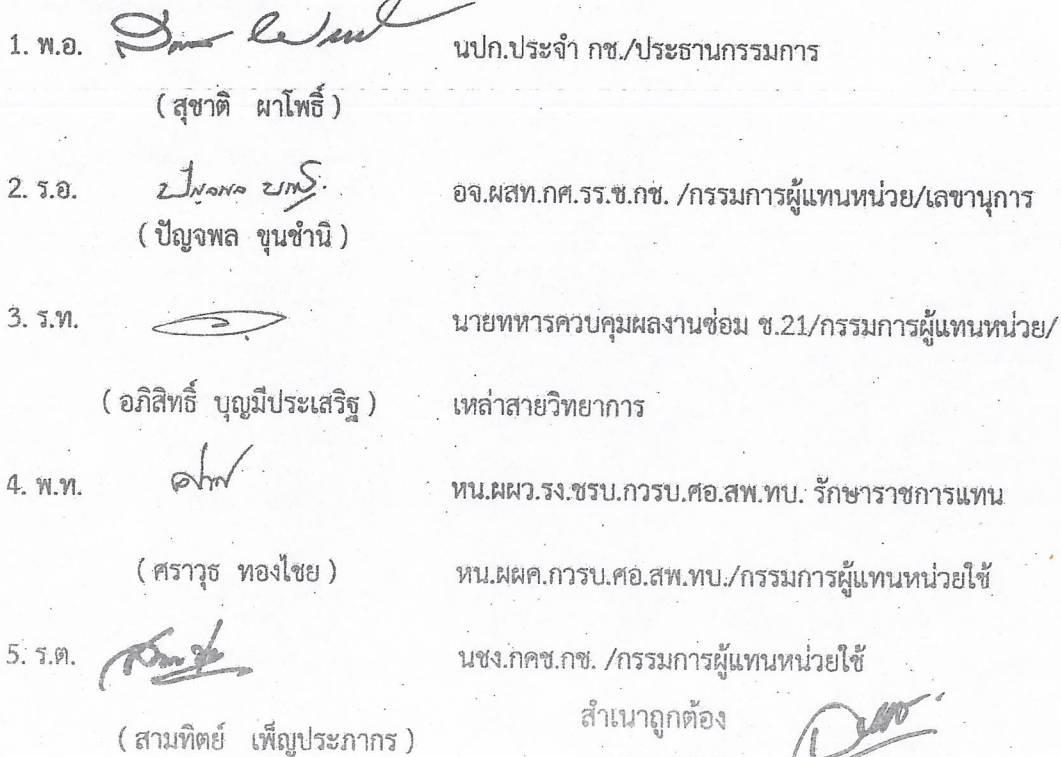 1. พ.อ. นปก.ประจำ กช./ประธานกรรมการ
( สุชาติ ผาโพธิ์ )
2. ร.อ. อจ.ผสท.กศ.รร.ช.กช. /กรรมการผู้แทนหน่วย/เลขานุการ
( ปัญจพล ขุนชำนิ )
3. ร.ท. นายทหารควบคุมผลงานซ่อม ช.21/กรรมการผู้แทนหน่วย/
( อภิสิทธิ์ บุญมีประเสริฐ ) เหล่าสายวิทยาการ
4. พ.ท. หน.ผผว.รง.ชรบ.กวรบ.ศอ.สพ.ทบ. รักษาราชการแทน
( ศราวุธ ทองไชย ) หน.ผผค.กวรบ.ศอ.สพ.ทบ./กรรมการผู้แทนหน่วยใช้
5. ร.ต. นชง.กคช.กช. /กรรมการผู้แทนหน่วยใช้
สำเนาถูกต้อง
( สามทิตย์ เพ็ญประภากร )